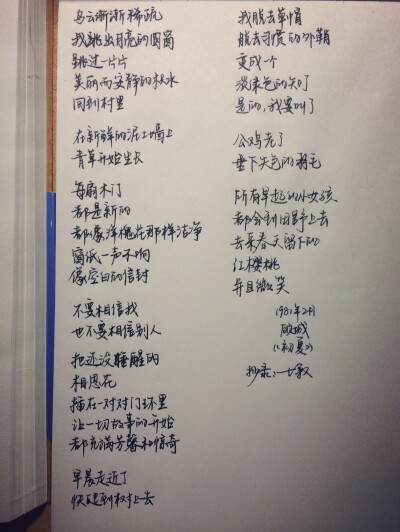 乌云渐渐稀疏
我跳出月亮的圆窗
跳过一片片
美丽而安静的积水
回到村里
在新鲜的泥土墙上
青草开始生长
每扇木门
都是新的
都像洋槐花那样洁净
窗纸一声不响
像空白的信封
不要相信我
也不要相信别人
把还没睡醒的
相思花
插在一对对门环里
让一切故事的开始
都充满芳馨和惊奇
早晨走近了
快爬到树上去
我脱去草帽
脱去习惯的外鞘
变成一个
淡绿色的知了
是的，我要叫了
公鸡老了
垂下失色的羽毛
所有早起的小女孩
都会到田野上去
去采春天留下的
红樱桃
并且微笑
1981年2月
顾城
《初夏》